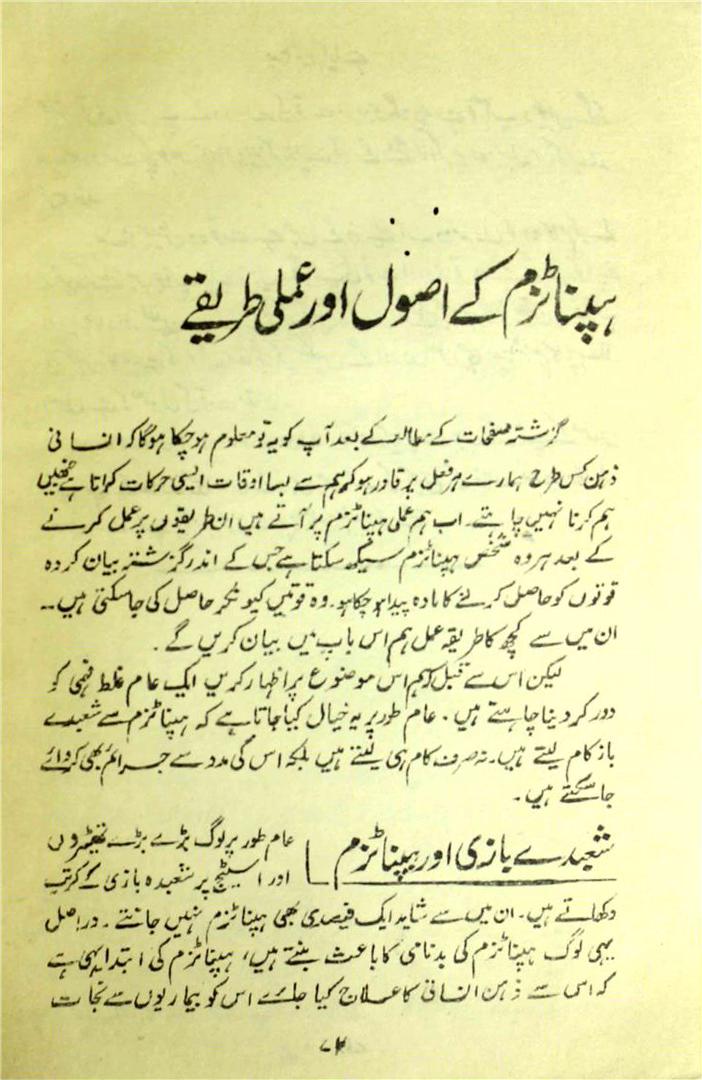 ہپناٹزم کے اصول اور عملی طریقے
گزشتہ صفحات کے مطالعہ کے بعد آپ کو یہ تو معلوم ہوچکا ہوگا کہ انسانی
ذہن کس طرح ہمارے ہر فعل پر قادر ہوکر ہم سے بسا اوقات ایسی حرکات کراتا ہے جنھیں
ہم کرنا نہیں چاہتے۔ اب ہم عملی ہپناٹزم پر آتے ہیں ان طریقوں پر عمل کرنے
کے بعد ہر وہ شخص ہپناٹزم سیکھ سکتا ہے جس کے اندر گزشتہ بیان کردہ
قوتوں کو حاصل کرنے کا مادہ پیدا ہوچکا ہو۔ وہ قوتیں کیونکر حاصل کی جاسکتی ہیں۔۔
ان میں سے کچھ کا طریقہ عمل ہم اس باب میں بیان کریں گے۔
لیکن اس سے قبل کہ ہم اس موضوع پر اظہار کریں ایک عام غلط فہمی کو
دور کر دینا چاہتے ہیں۔ عام طور پر یہ خیال کیا جاتا ہے کہ ہپناٹزم سے شعبدے
باز کام لیتے ہیں۔ نہ صرف کام ہی لیتے ہیں بلکہ اس کی مدد سے جرائم بھی کروائے
جاسکتے ہیں۔
شعبدے بازی اور ہپناٹزم
عام طور پر لوگ بڑے بڑے تھیٹروں
اور اسٹیج پر شعبدہ بازی کے کرتب
دکھاتے ہیں۔ ان میں سے شاید ایک فیصدی بھی ہپناٹزم نہیں جانتے۔ دراصل
یہی لوگ ہپناٹزم کی بدنامی کا باعث بنتے ہیں، ہپناٹزم کی ابتدا یہی ہے
کہ اس سے ذہن انسانی کا علاج کیا جائے اس کو بیماریوں سے نجات
۷۴